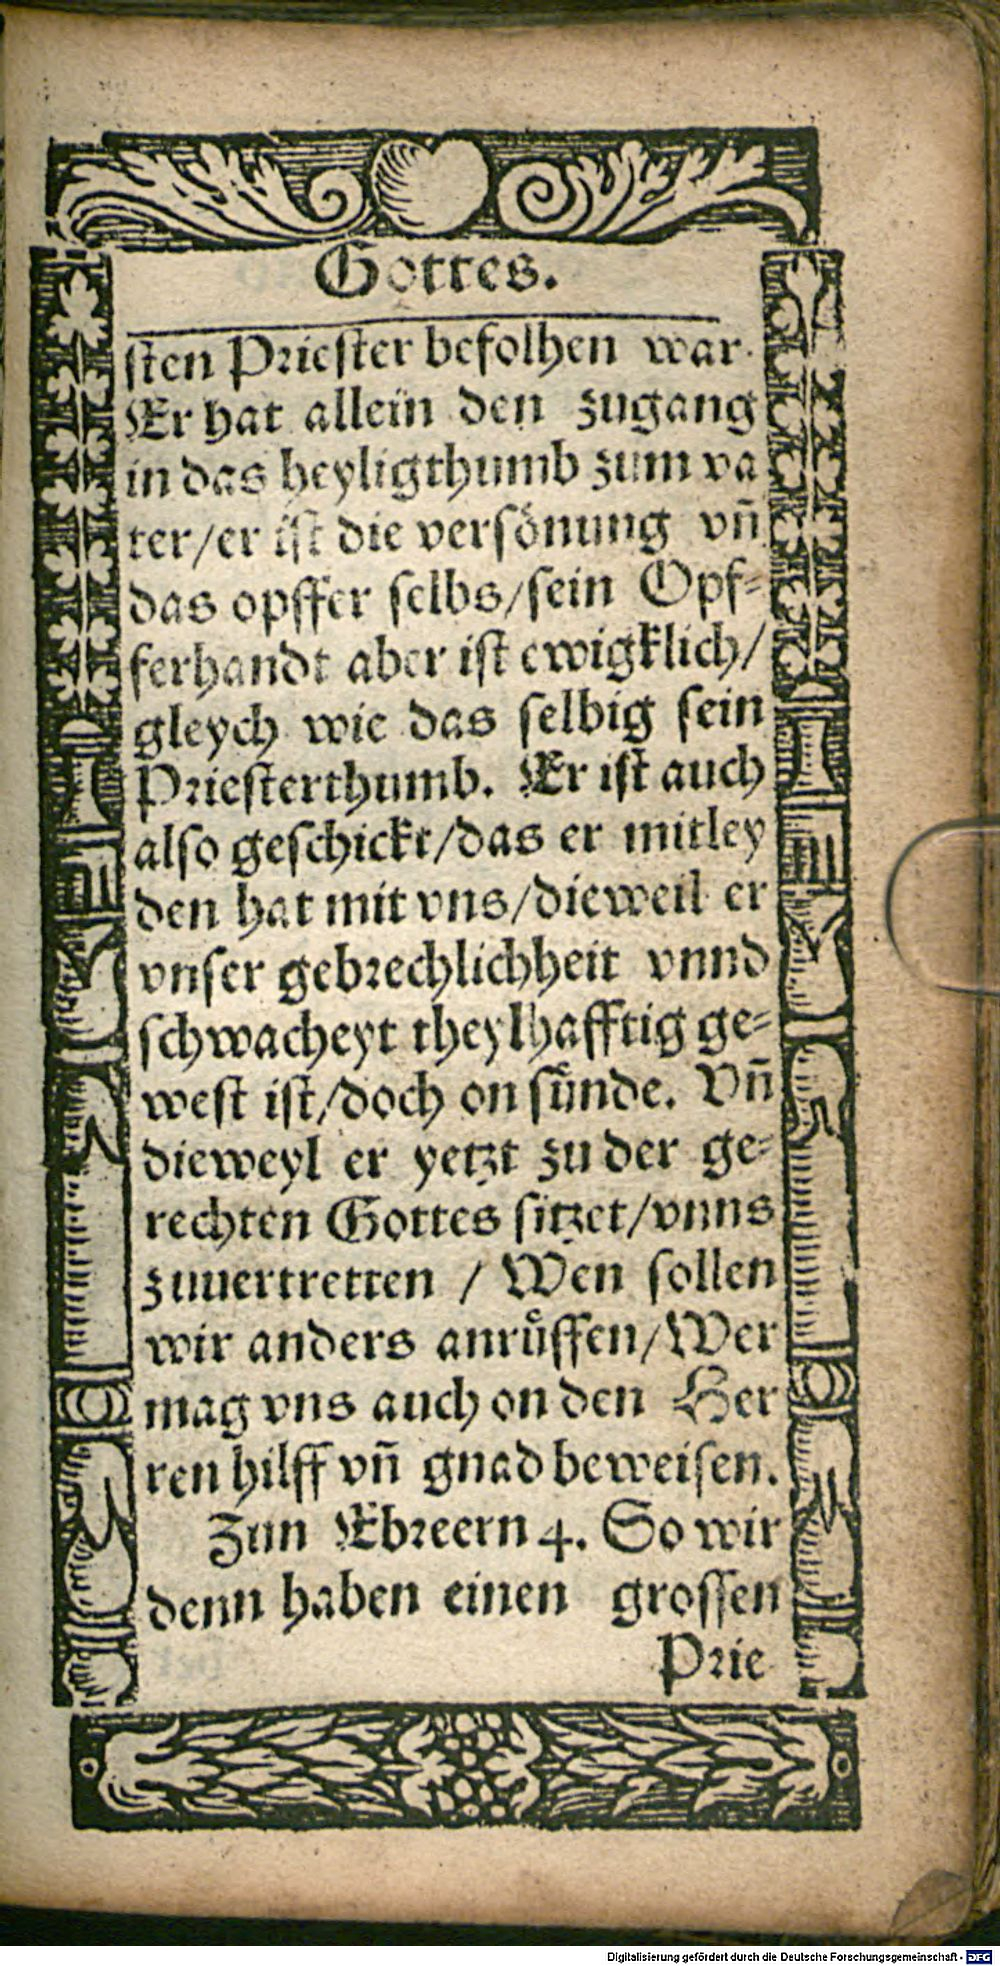 Gottes.
sten Priester befolhen war.
Er hat allein den zugang
in das heyligthumb zum va
ter/er ist die versönung vñ
das opffer selbs/sein Opf-
ferhandt aber ist ewigklich/
gleych wie das selbig sein
Priesterthumb. Er ist auch
also geschickt/das er mitley
den hat mit vns/dieweil er
vnser gebrechlichheit vnnd
schwacheyt theylhafftig ge-
west ist/doch on sünde. Vñ
dieweyl er yetzt zu der ge-
rechten Gottes sitzet/vnns
zuuertretten / Wen sollen
wir anders anrüffen/Wer
mag vns auch on den Her
ren hilff vñ gnad beweisen.
Zun Ebreern 4. So wir
denn haben einen grossen
Prie
Digitalisierung gefördert durch die Deutsche Forschungsgemeinschaft - DFG